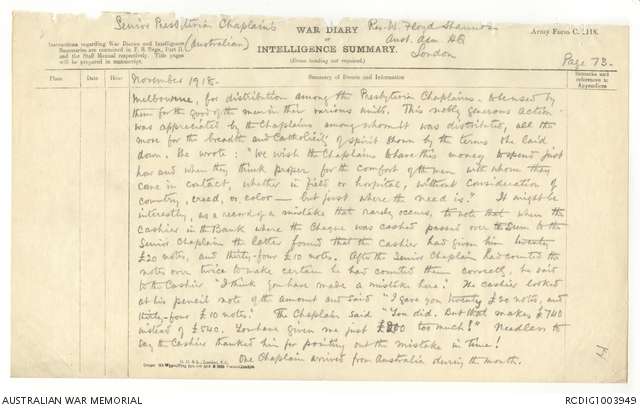 Senior Presbyterian Chaplains
(Australian)
WAR DIARY
or
INTELLIGENCE SUMMARY.
(Erase heading not required).
Rev. W. Floyd Shannon
Aust. Gen HQ
London
Army Form C. 2118.
Page 73.
Instructions regarding War Diaries and Intelligence
Summaries are contained in F. S. Regs., Part II.
and the Staff Manual respectively. Title pages
will be prepared in manuscript.
Place Date Hour Summary of Events and Information Remarks and references to Appendices
November 1918.
Melbourne, for distribution among the Presbyterian Chaplains - to be used by
them for the good of the men in their various units. This nobly generous action
was appreciated by the Chaplains among whom it was distributed, all the
more for the breadth and Catholicity of spirit shown by the terms she laid
down. She wrote: "We wish the Chaplains to have this money to spend just
how and when they think proper for the comfort of the men with whom they
come in contact, whether in field or hospital, without consideration of
country, creed, or color - but just where the need is." It might be
interesting, as a record of a mistake that rarely occurs, to note that when the
Cashier in the Bank where the Cheque was cashed passed over the Sum to the
Senior Chaplain the latter found that the Cashier had given him twenty
£20 notes, and thirty-four £10 notes. After the Senior Chaplain had counted the
notes over twice to make certain he had counted them correctly, he said
to the Cashier "I think you have made a mistake here". The cashier looked
at his pencil note of the amount and said "I gave you twenty £20 notes, and
thirty-four £10 notes." The Chaplain said "You did. But that makes £740
instead of £540. You have given me just £200 too much!" Needless to
say the Cashier thanked him for pointing out the mistake in time!
One Chaplain arrived from Australia during the month.
AUSTRALIAN WAR MEMORIAL
RCDIG1003949